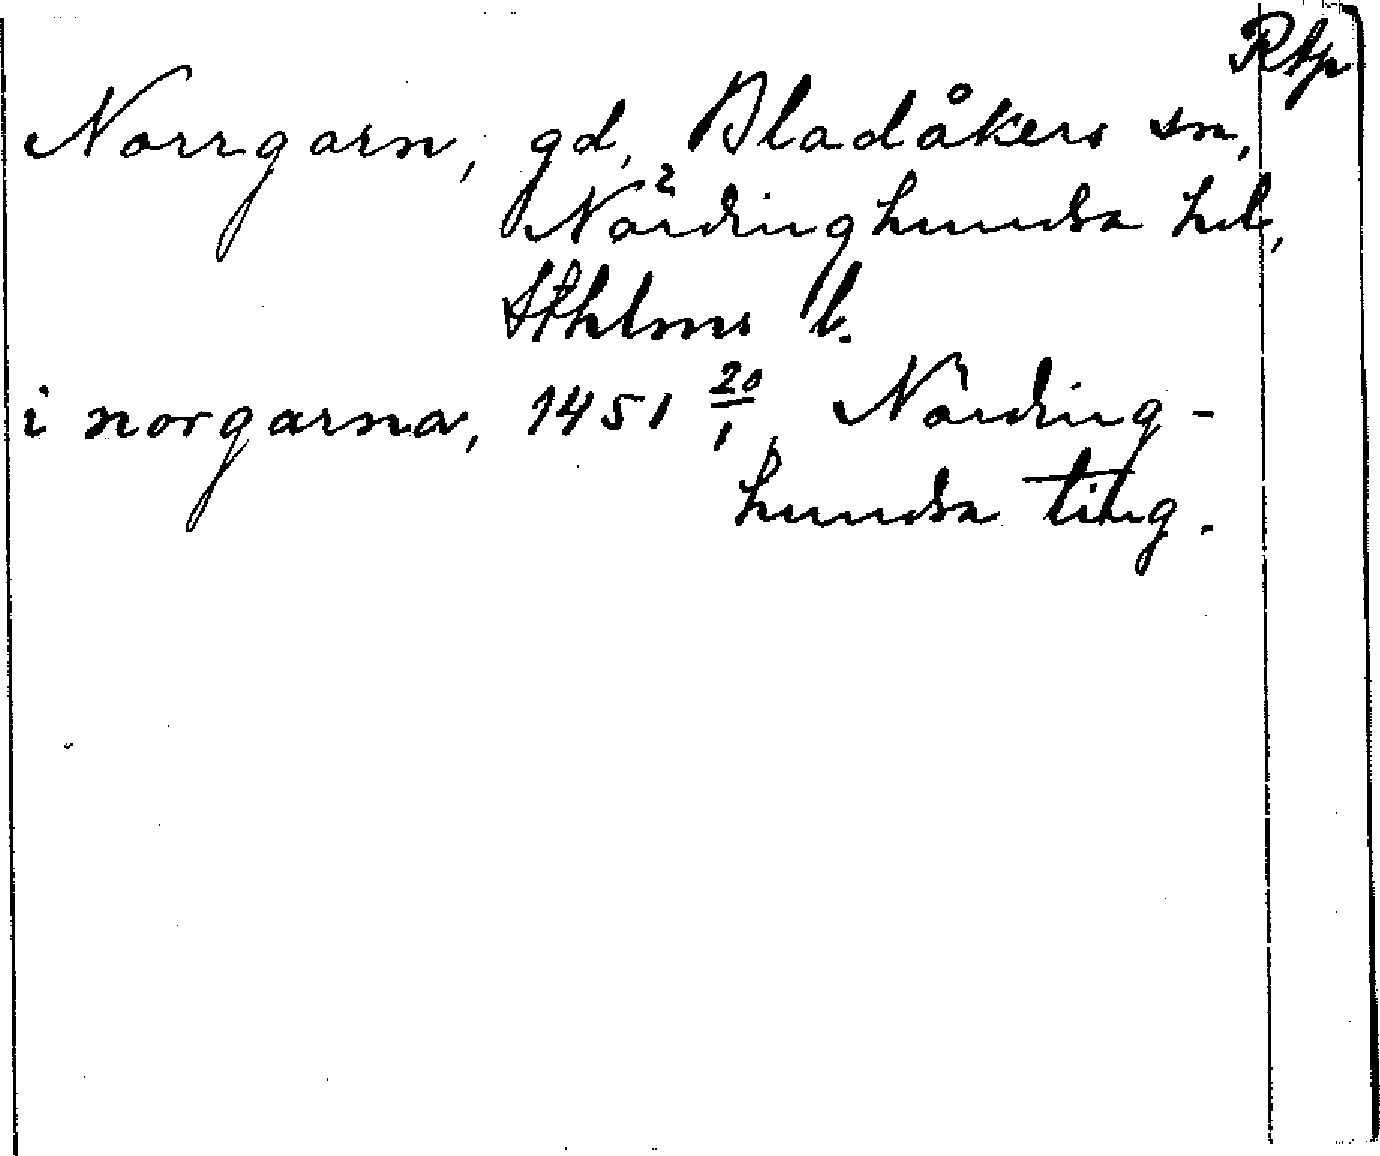 RAp
Norrgarn, gd, Bladåkers sn,
Närdinghundra hd,
Sthlms l.
i norgarna, 1451 20/1, Närding-
hundra ting.